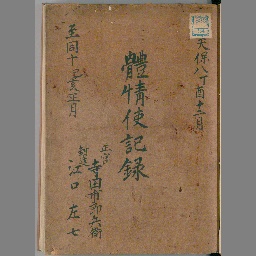 天保八丁酉十二月
體情使記録
至同十己亥正月
正官
寺田市郎兵衛
封進
江口左七